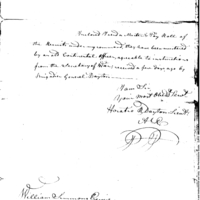 Enclosed I send a Muster & Pay Roll of
the Recruits under my command they have been mustered
by an old Continental Officer, agreeable to instructions
from the secretary of War, received a few days ago by
Brigadier General Dayton.
I am Sir,
Your most Obedt Servt
Horatio R. Dayton Lieut
William Simmons Esqr